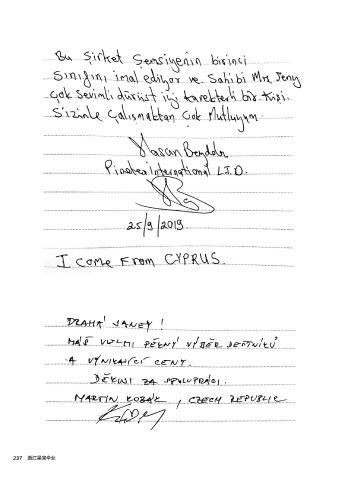 Bu Şirket Şemsiyenin birinci
Sınıfını imal ediyor ve Sahibi Mrs Jeny
Çok Sevimli dürüst iyi karekterli bir Kişi.
Sizinle Çalışmaktan Çok Mutluyum.
Hasan
International L.T.D.
25/9/2019
I come From CYPRUS.
DRAHÁ JANEY!
MÁŠ VELMI PĚKNÝ VÝBĚR DEŠTNÍKŮ
A VYNIKAJÍCÍ CENY.
DĚKUJI ZA SPOLUPRÁCI.
MARTIN KOZÁK, CZECH REPUBLIC
237 浙江星宝伞业